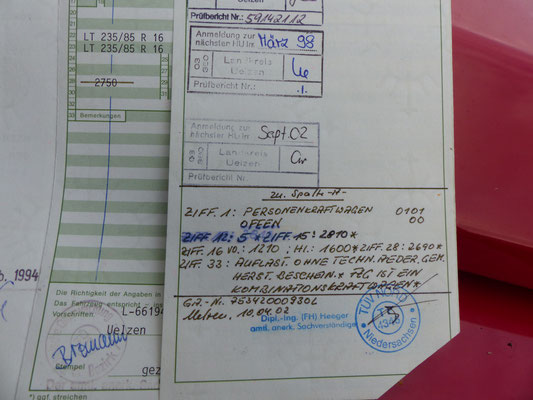 LT 235/85 R 16
LT 235/85 R 16
2750
33 Bemerkungen
1994
Die Richtigkeit der Angaben in
Das Fahrzeug entspricht
Vorschriften.
L-66194
Uelzen
Stempel
gez
*) ggf. streichen
Uelzen
Prüfbericht Nr.: 59142112
Anmeldung zur
nächsten HU im März 98
Landkreis
Uelzen
Prüfbericht Nr.:
Anmeldung zur
nächsten HU im Sept. 02
Landkreis
Uelzen
Prüfbericht Nr.:
zu Spalte -A-
ZIFF. 1: PERSONENKRAFTWAGEN 0101
OFFEN 00
ZIFF. 12: 5 * ZIFF. 15: 2810*
ZIFF. 16 VO.: 1210; HI.: 1600* ZIFF. 28: 2690*
ZIFF. 33: AUFLAST. OHNE TECHN. AEDER. GEM.
HERST. BESCHEIN. * FZG IST EIN
KOMBINATIONSKRAFTWAGEN*
Uelzen, 10.04.02
Dipl.-Ing. (FH) Heeger
amtl. anerk. Sachverständige
TÜV NORD
Niedersachsen